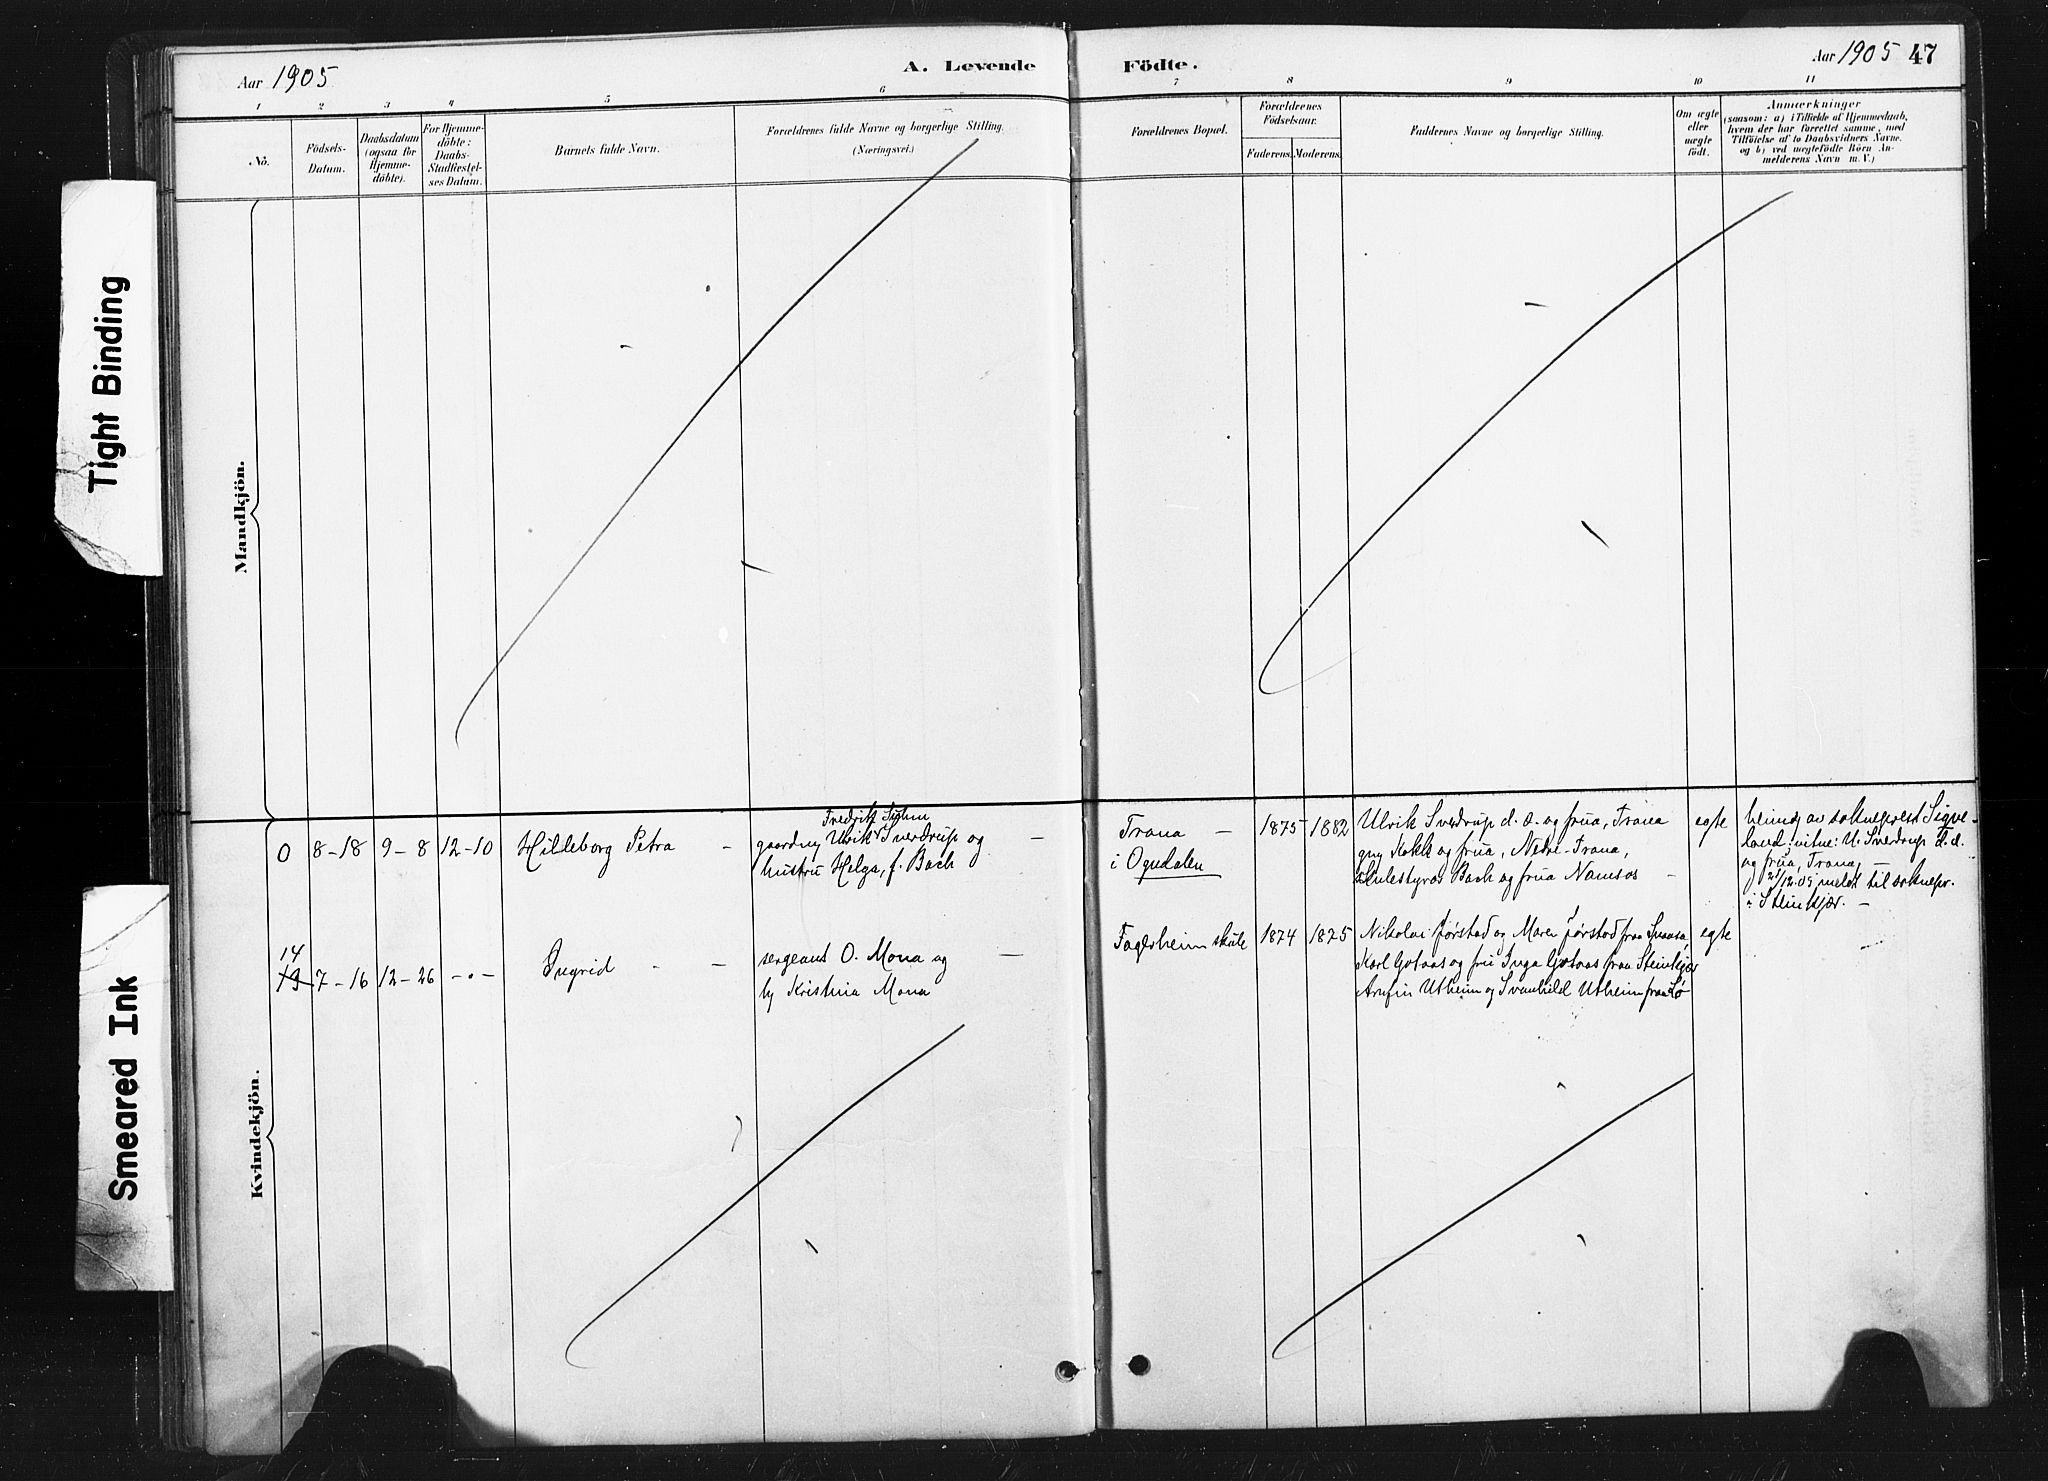 Aar 1905
A. Levende
Födte.
Aar 1905 47
1 2 3 4 5 6 7 8 9 10 11
Nö.
Födsels-
Datum.
Daabsdatum
(ogsaa for
Hjemme-
döbte).
For Hjemme-
döbte:
Daabs-
Stadfæstel-
ses Datum.
Barnets fulde Navn.
Forældrenes fulde Navne og borgerlige Stilling.
(Næringsvei.)
Forældrenes Bopæl.
Forældrenes
Födselsaar.
Faderens. Moderens.
Faddernes Navne og borgerlige Stilling.
Om ægte
eller
uægte
født.
Anmærkninger
(saasom: a) i Tilfælde af Hjemmedaab,
hvem der har forrettet samme, med
Tilföielse af to Daabsvidners Navne.
og b) ved uægtefödte Börn An-
melderens Navn m. V.)
Mandkjön.
Kvindekjön.
0 8-18 9-8 12-10 Hilleborg Petra -
Fredrik Suhm
gaardmg Ulrik Sverdrup og
hustru Helga, f. Bach
Trana -
i Ogndalen
1875 - 1882
Ulrik Sverdrup d. æ. og frua, Trana
gmg Kokk og frua, Nedre-Trana,
skulestyrar Bach og frua Namsos -
egte
heimdø av sokneprest Sigve-
land; vitne: U. Sverdrup d. æ.
og frua, Trana, -
21/12.05 meldt til soknepr.
i Steinkjær. -
14
13 7-16 12-26 -"- Ingrid - -
sergeant O. Mona og
hu Kristina Mona
Faglsheim skule
1874 1875
Nikolai Førstad og Maren Førstad fraa Snaasa,
Karl Gotaas og fru Inga Gotaas fraa Steinkjær
Arnfin Utheim og Svanhild Utheim fraa Lø
egte
Tight Binding
Smeared Ink